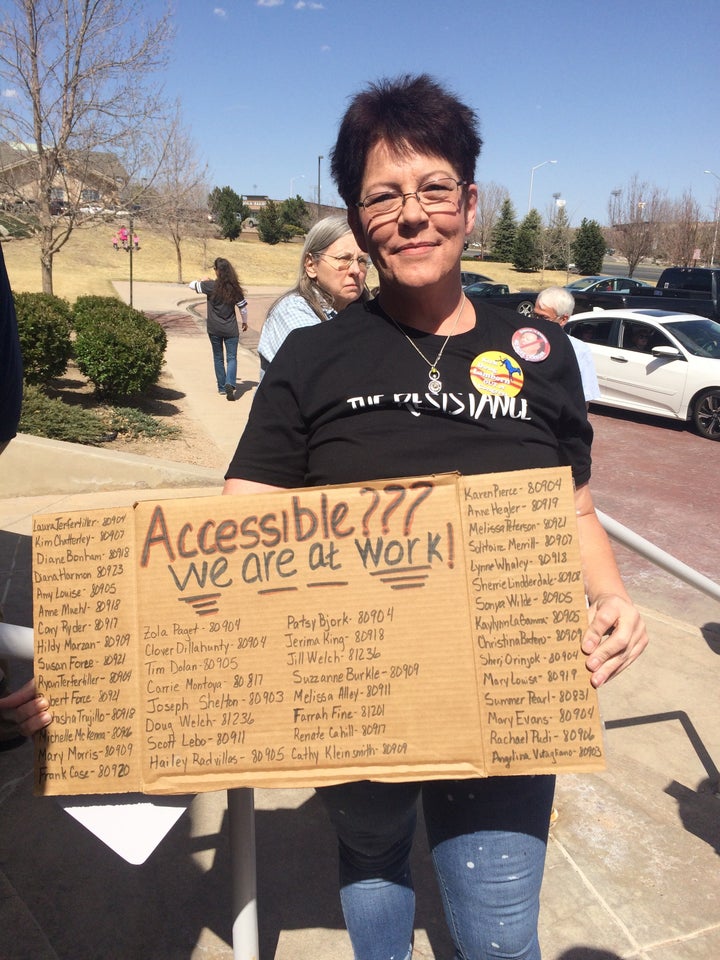 THE RESISTANCE
Accessible???
we are at work!
Laura Terfertiller - 80904
Kim Chatterley - 80907
Diane Bonham - 80918
Dana Harmon 80923
Amy Louise - 80905
Anne Muehl - 80918
Cory Ryder - 80917
Hildy Marzan - 80909
Susan Forze - 80921
Ryan Terfertiller - 80904
bert Forze 80921
asha Trujillo - 80918
Michelle McKemma - 80906
Mary Morris - 80909
Frank Case - 80920
Zola Paget - 80904
Clover Dillahunty - 80904
Tim Dolan - 80905
Carrie Montoya - 80817
Joseph Shelton - 80903
Doug Welch - 81236
Scott Lebo - 80911
Hailey Radvillas - 80905
Patsy Bjork - 80904
Jerima King - 80918
Jill Welch - 81236
Suzzanne Burkle - 80909
Melissa Alley - 80911
Farrah Fine - 81201
Renate Cahill - 80917
Cathy Kleinsmith - 80909
Karen Pierce - 80904
Anne Hegler - 80919
Melissa Peterson - 80921
Solitaire Merrill - 80907
Lynne Whaley - 80918
Sherrie Lindderdale - 80908
Sonya Wilde - 80905
Kaylynn LaGamma - 80905
Christina Botero - 80909
Sheri Orinjok - 80904
Mary Louise - 80919
Summer Pearl - 80831
Mary Evans - 80904
Rachael Pedi - 80906
Angelina Vutagliano - 80903